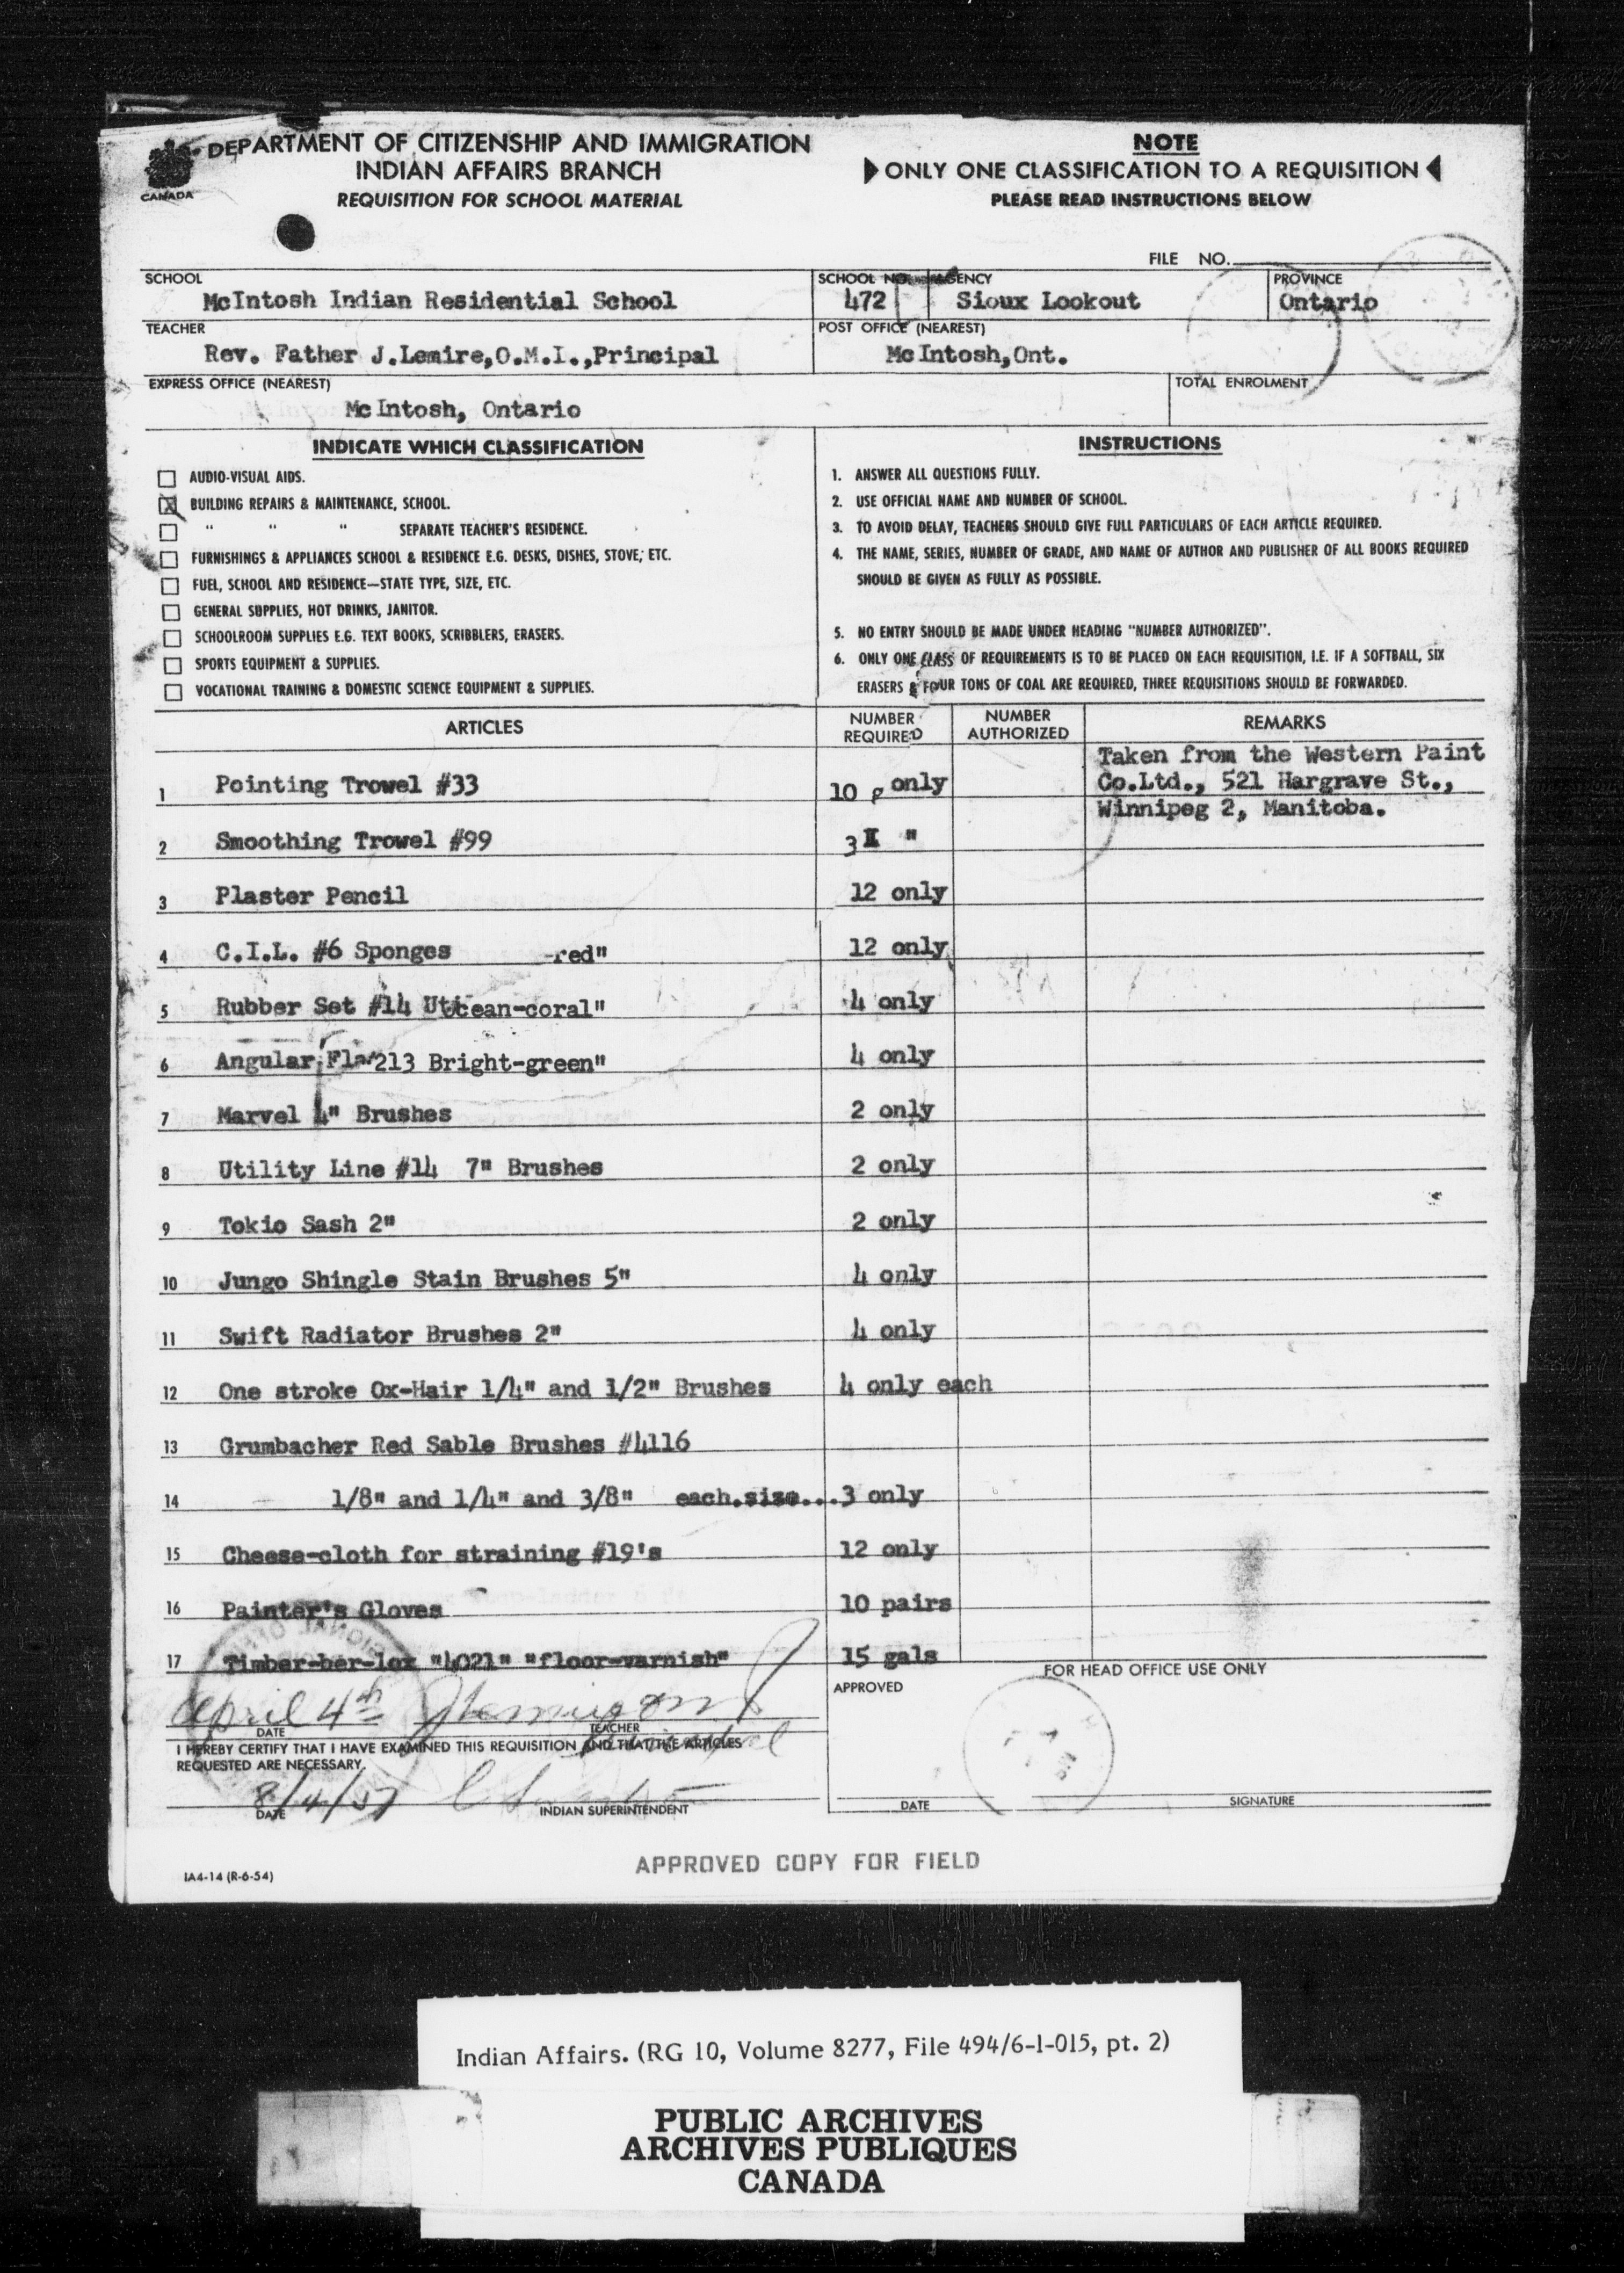 DEPARTMENT OF CITIZENSHIP AND IMMIGRATION
INDIAN AFFAIRS BRANCH
REQUISITION FOR SCHOOL MATERIAL
CANADA
NOTE
ONLY ONE CLASSIFICATION TO A REQUISITION
PLEASE READ INSTRUCTIONS BELOW
FILE NO.
SCHOOL
McIntosh Indian Residential School
SCHOOL NO. AGENCY
472 Sioux Lookout
PROVINCE
Ontario
TEACHER
Rev. Father J.Lemire,O.M.I.,Principal
POST OFFICE (NEAREST)
McIntosh,Ont.
EXPRESS OFFICE (NEAREST)
McIntosh, Ontario
TOTAL ENROLMENT
INDICATE WHICH CLASSIFICATION
AUDIO-VISUAL AIDS.
X BUILDING REPAIRS & MAINTENANCE, SCHOOL.
" " " SEPARATE TEACHER'S RESIDENCE.
FURNISHINGS & APPLIANCES SCHOOL & RESIDENCE E.G. DESKS, DISHES, STOVE, ETC.
FUEL, SCHOOL AND RESIDENCE—STATE TYPE, SIZE, ETC.
GENERAL SUPPLIES, HOT DRINKS, JANITOR.
SCHOOLROOM SUPPLIES E.G. TEXT BOOKS, SCRIBBLERS, ERASERS.
SPORTS EQUIPMENT & SUPPLIES.
VOCATIONAL TRAINING & DOMESTIC SCIENCE EQUIPMENT & SUPPLIES.
INSTRUCTIONS
1. ANSWER ALL QUESTIONS FULLY.
2. USE OFFICIAL NAME AND NUMBER OF SCHOOL.
3. TO AVOID DELAY, TEACHERS SHOULD GIVE FULL PARTICULARS OF EACH ARTICLE REQUIRED.
4. THE NAME, SERIES, NUMBER OF GRADE, AND NAME OF AUTHOR AND PUBLISHER OF ALL BOOKS REQUIRED
SHOULD BE GIVEN AS FULLY AS POSSIBLE.
5. NO ENTRY SHOULD BE MADE UNDER HEADING "NUMBER AUTHORIZED".
6. ONLY ONE CLASS OF REQUIREMENTS IS TO BE PLACED ON EACH REQUISITION, I.E. IF A SOFTBALL, SIX
ERASERS & FOUR TONS OF COAL ARE REQUIRED, THREE REQUISITIONS SHOULD BE FORWARDED.
ARTICLES
NUMBER REQUIRED
NUMBER AUTHORIZED
REMARKS
Taken from the Western Paint
Co.Ltd., 521 Hargrave St.,
Winnipeg 2, Manitoba.
1 Pointing Trowel #33 10 only
2 Smoothing Trowel #99 3 "
3 Plaster Pencil 12 only
4 C.I.L. #6 Sponges -red" 12 only
5 Rubber Set #14 Uti cean-coral" 4 only
6 Angular Fla 213 Bright-green" 4 only
7 Marvel 4" Brushes 2 only
8 Utility Line #14 7" Brushes 2 only
9 Tokio Sash 2" 2 only
10 Jungo Shingle Stain Brushes 5" 4 only
11 Swift Radiator Brushes 2" 4 only
12 One stroke Ox-Hair 1/4" and 1/2" Brushes 4 only each
13 Grumbacher Red Sable Brushes #4116
14 1/8" and 1/4" and 3/8" each.size...3 only
15 Cheese-cloth for straining #19's 12 only
16 Painter's Gloves 10 pairs
17 Timber-ber-lox "4021" "floor-varnish" 15 gals
FOR HEAD OFFICE USE ONLY
APPROVED
April 4th
DATE TEACHER
Principal
I HEREBY CERTIFY THAT I HAVE EXAMINED THIS REQUISITION AND THAT THE ARTICLES
REQUESTED ARE NECESSARY.
8/4/57
DATE INDIAN SUPERINTENDENT
DATE SIGNATURE
APPROVED COPY FOR FIELD
IA4-14 (R-6-54)
Indian Affairs. (RG 10, Volume 8277, File 494/6-1-015, pt. 2)
PUBLIC ARCHIVES
ARCHIVES PUBLIQUES
CANADA